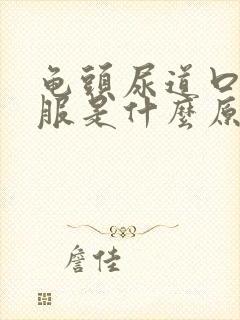 龟頭尿道口
服是什麼原
詹佳